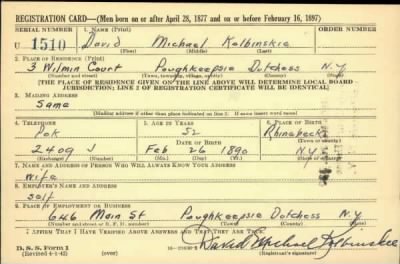 REGISTRATION CARD—(Men born on or after April 28, 1877 and on or before February 16, 1897)
SERIAL NUMBER 1. NAME (Print) ORDER NUMBER
U 1510 David Michael Kolbinskie
(First) (Middle) (Last)
2. PLACE OF RESIDENCE (Print)
3 Wilmin Court Poughkeepsie Dutchess N.Y.
(Number and street) (Town, township, village, or city) (County) (State)
[THE PLACE OF RESIDENCE GIVEN ON THE LINE ABOVE WILL DETERMINE LOCAL BOARD
JURISDICTION; LINE 2 OF REGISTRATION CERTIFICATE WILL BE IDENTICAL]
3. MAILING ADDRESS
Same
[Mailing address if other than place indicated on line 2. If same insert word same]
4. TELEPHONE 5. AGE IN YEARS 6. PLACE OF BIRTH
Pok 52 Rhinebeck
DATE OF BIRTH (Town or county)
2409 J Feb 26 1890 N.Y.
(Exchange) (Number) (Mo.) (Day) (Yr.) (State or country)
7. NAME AND ADDRESS OF PERSON WHO WILL ALWAYS KNOW YOUR ADDRESS
Wife
8. EMPLOYER'S NAME AND ADDRESS
Self
9. PLACE OF EMPLOYMENT OR BUSINESS
646 Main St Poughkeepsie Dutchess N.Y.
(Number and street or R. F. D. number) (Town) (County) (State)
I AFFIRM THAT I HAVE VERIFIED ABOVE ANSWERS AND THAT THEY ARE TRUE.
D. S. S. Form 1 David Michael Kolbinskie
(Revised 4-1-42) (over) (Registrant's signature)